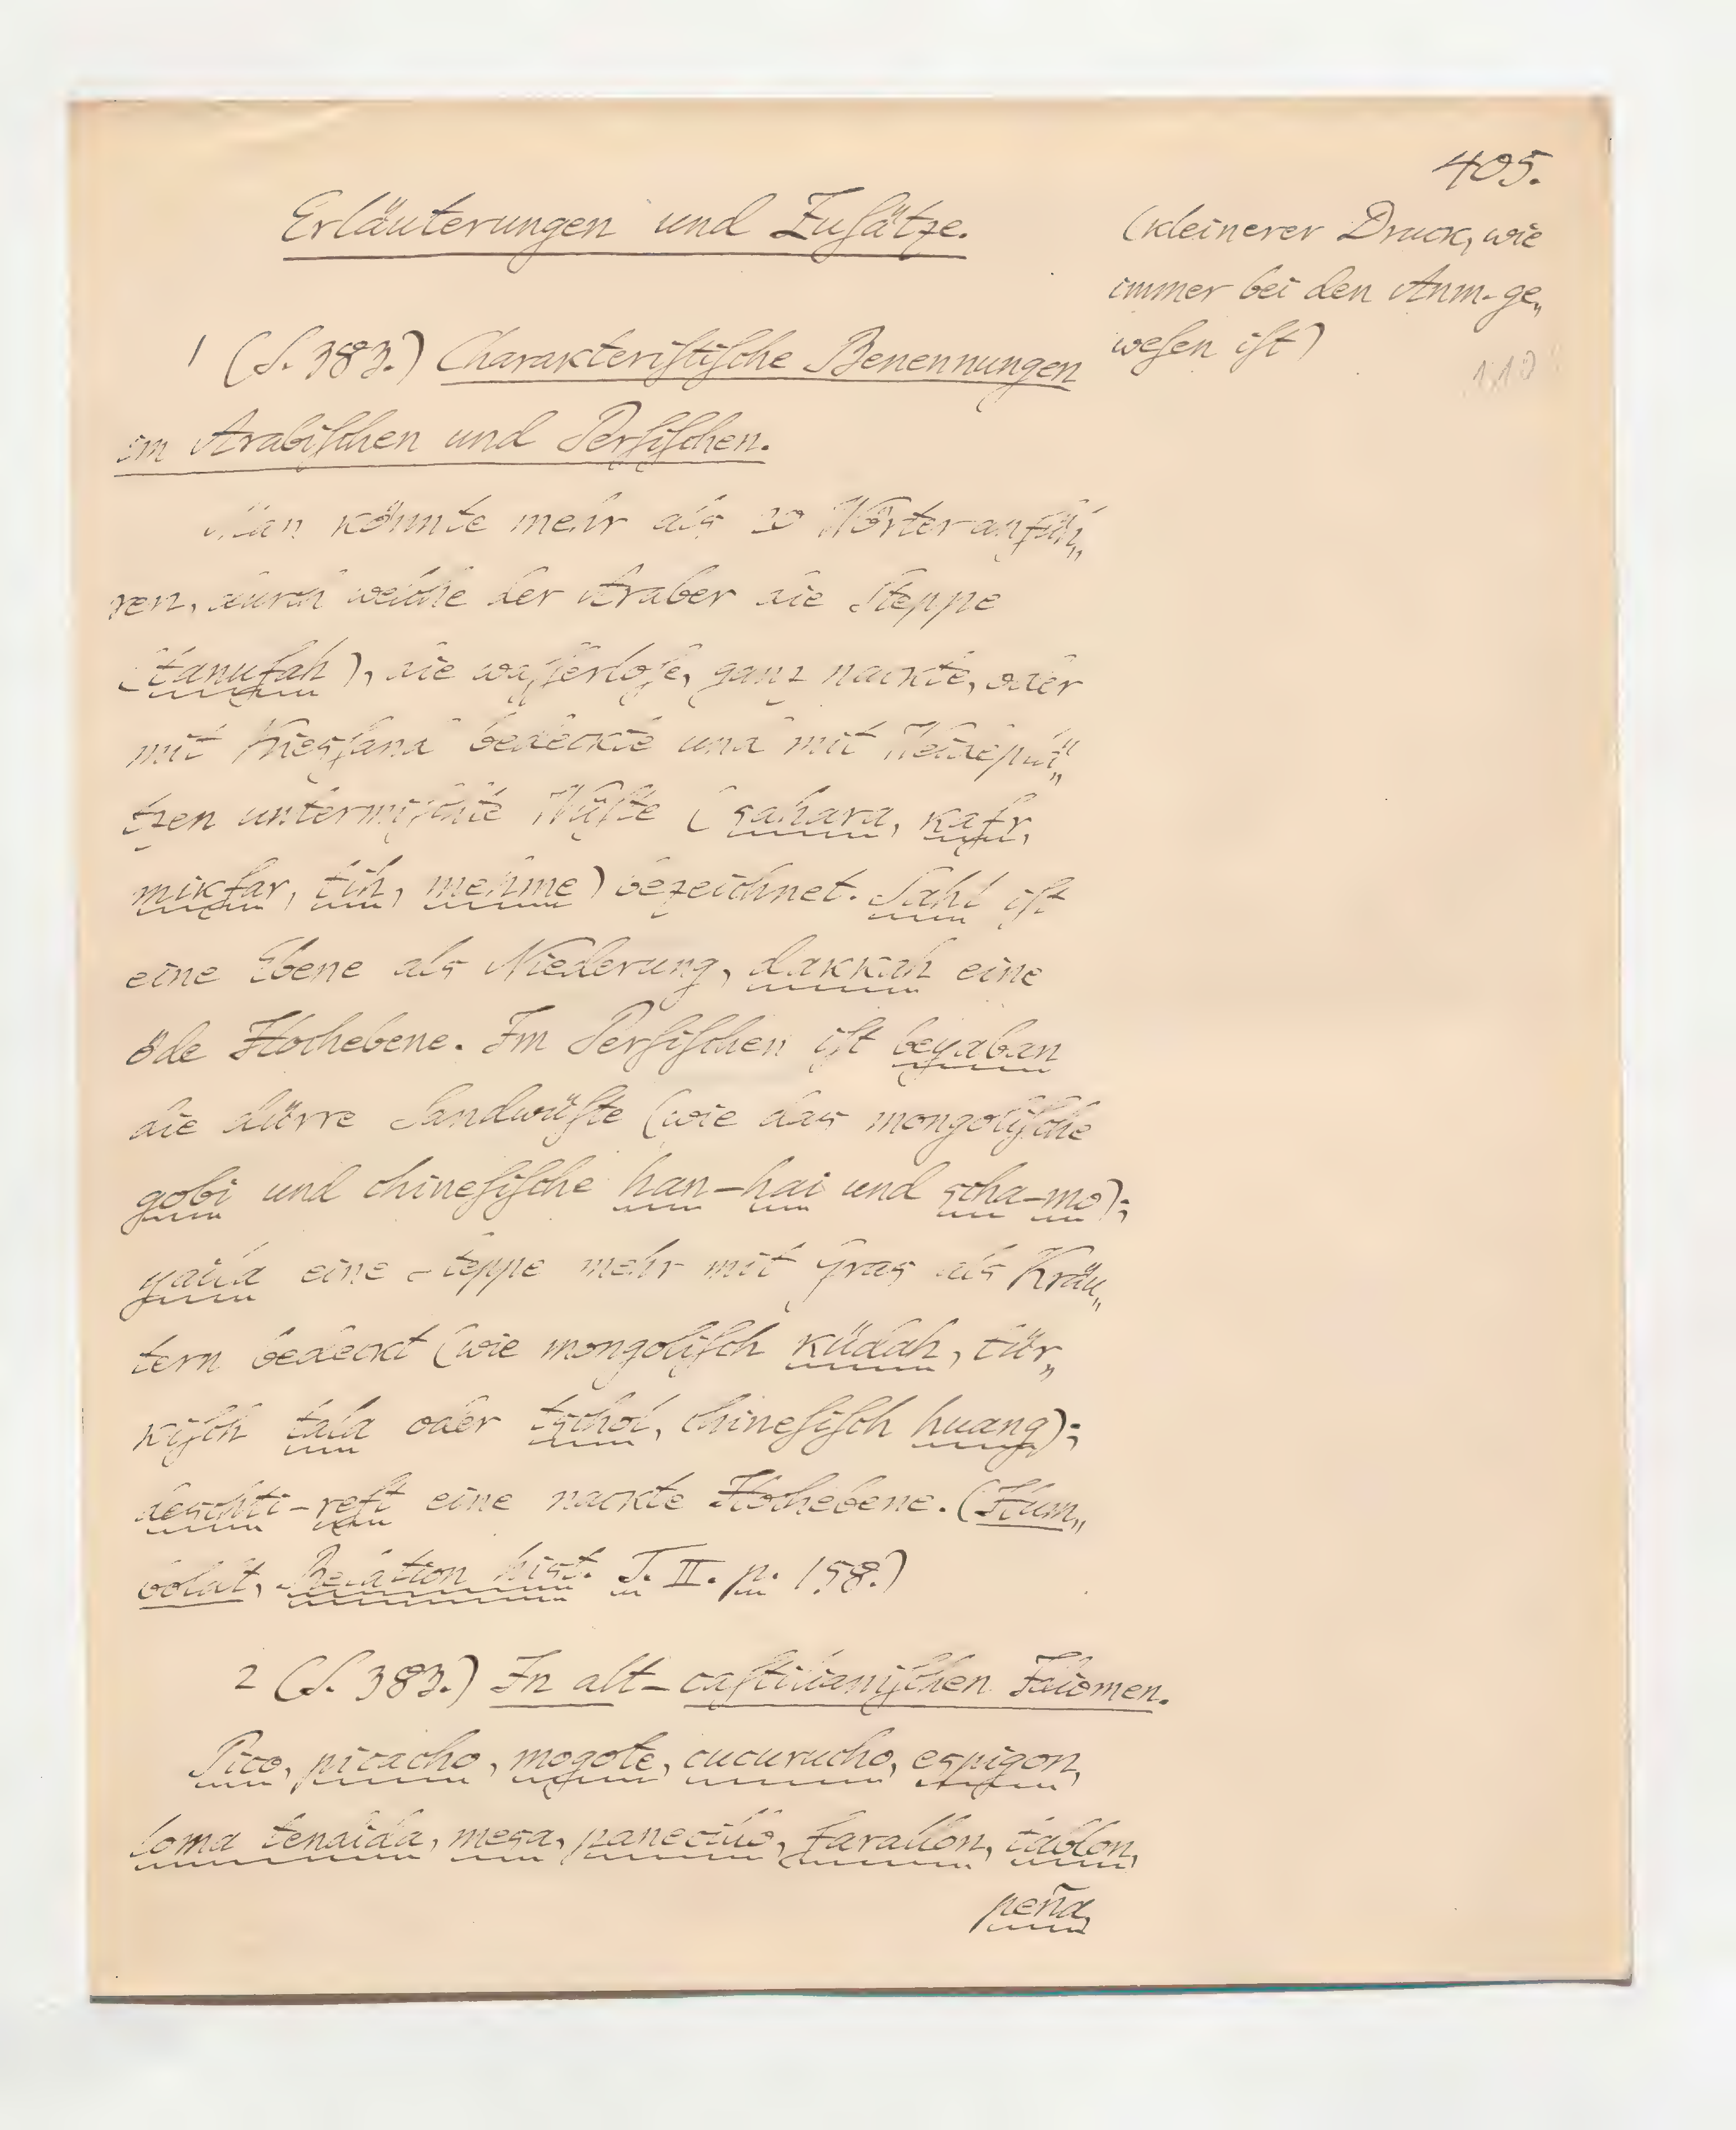 405.
Erläuterungen und Zuſätze.
(kleinerer Druck, wie
immer bei den Anm. ge„
weſen iſt)
1 (S. 383.) Charakteriſtiſche Benennungen
im Arabiſchen und Perſiſchen.
Man könnte mehr als 20 Wörter anfüh„
ren, durch welche der Araber die Steppe
(tanufah), die waſſerloſe, ganz nackte, oder
mit Kiesſand bedeckte und mit Weideplä„
tzen untermiſchte Wüſte (sahara, kafr,
mikfar, tih, mehme) bezeichnet. Sahl iſt
eine Ebene als Niederung, dakkah eine
öde Hochebene. Im Perſiſchen iſt beyaban
die dürre Sandwüſte (wie das mongoliſche
gobi und chineſiſche han-hai und scha-mo);
yaila eine Steppe mehr mit Gras als Kräu„
tern bedeckt (wie mongoliſch küdah, tür„
kiſch tala oder tschol, chineſiſch huang);
deschti-reft eine nackte Hochebene. (Hum„
boldt, Relation hist. T. II. p. 158.)
2 (S. 383.) In alt-caſtilianiſchen Idiomen.
Pico, picacho, mogote, cucurucho, espigon,
loma tendida, mesa, panecillo, farallon, tablon,
peña,